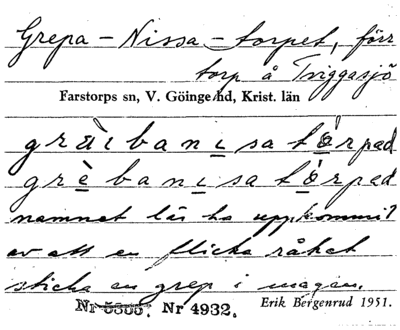 Grepa-Nissa-torpet, förr
torp å Triggasjö
Farstorps sn, V. Göinge hd, Krist. län
græ̀ibanisatò̱rpad
grèbanisatò̱rpad
namnet lär ha uppkommit
av att en flicka råkat
sticka en grep i magen.
Nr 5355. Nr 4932. Erik Bergenrud 1951.